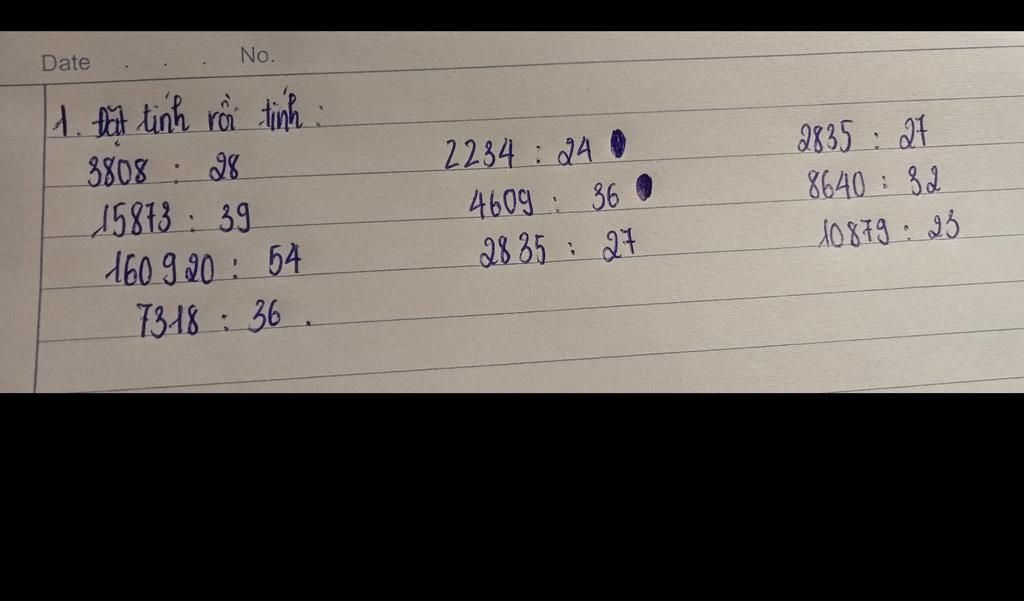 Date . . . No.
1. Đặt tính rồi tính :
3808 : 28 2234 : 24 2835 : 27
15873 : 39 4609 : 36 8640 : 32
160920 : 54 2835 : 27 10879 : 23
7318 : 36 .